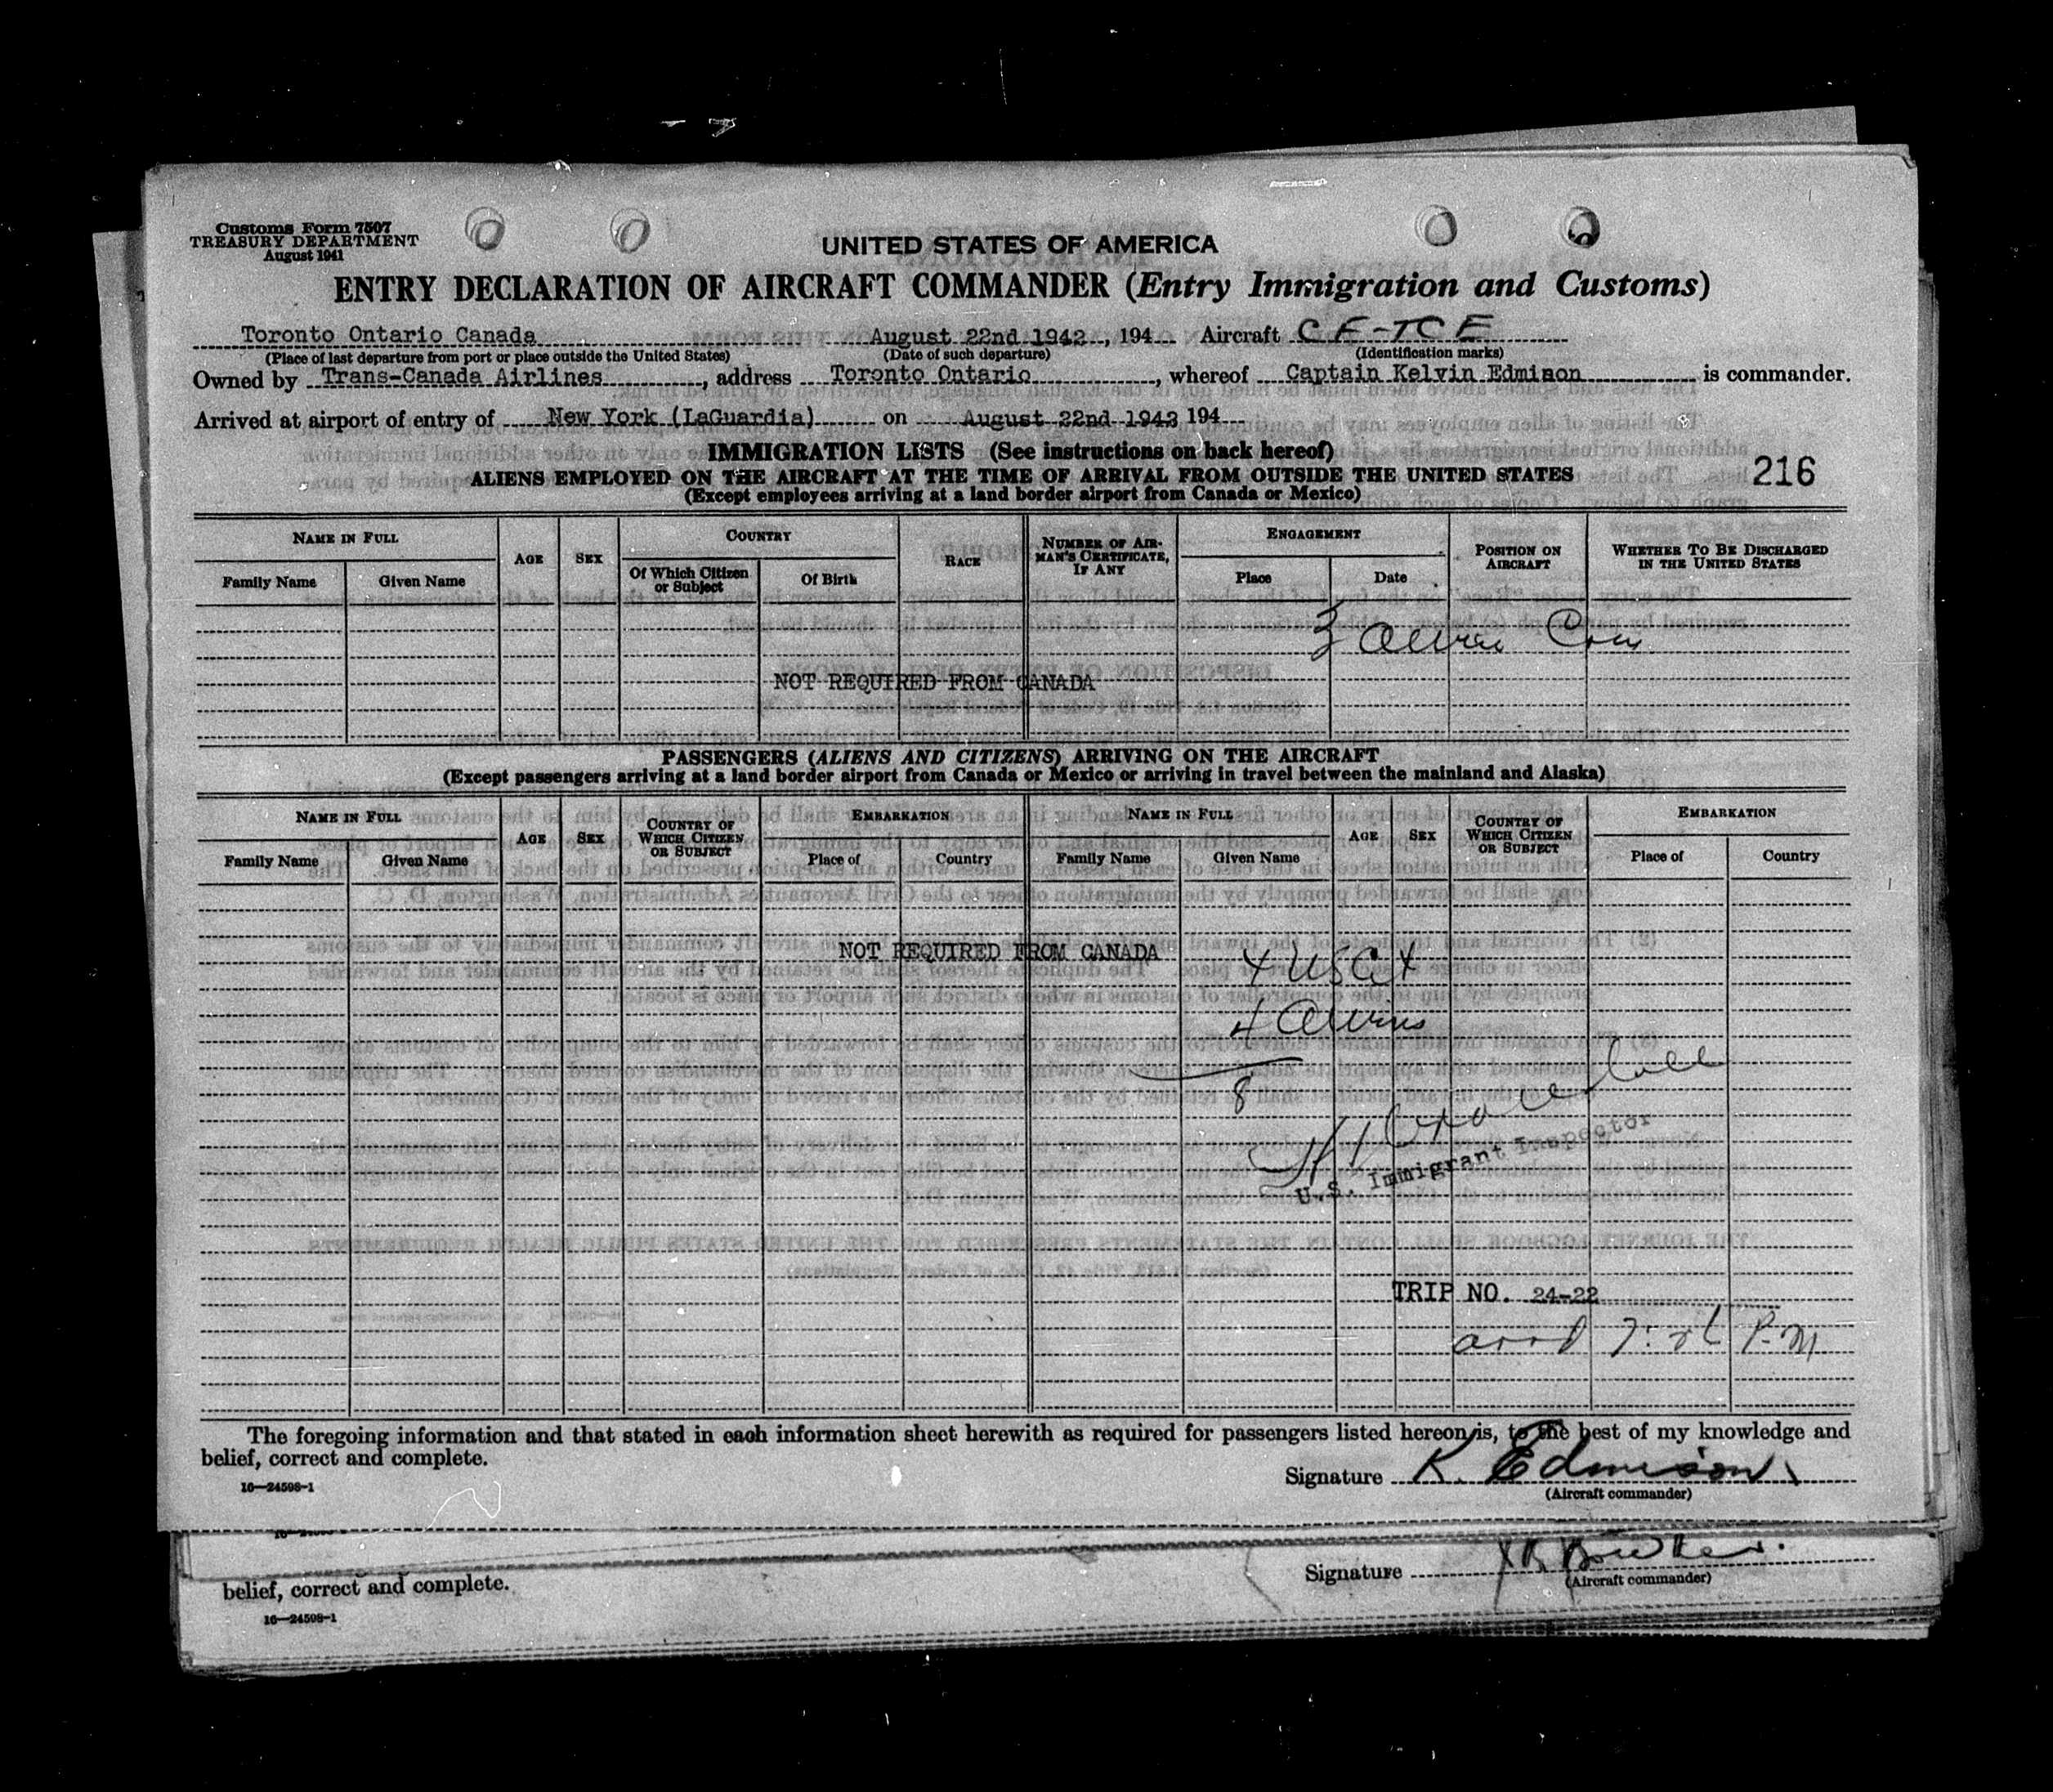 Customs Form 7507
TREASURY DEPARTMENT
August 1941
UNITED STATES OF AMERICA
ENTRY DECLARATION OF AIRCRAFT COMMANDER (Entry Immigration and Customs)
Toronto Ontario Canada August 22nd 1942, 194 Aircraft CF-TCE
(Place of last departure from port or place outside the United States) (Date of such departure) (Identification marks)
Owned by Trans-Canada Airlines, address Toronto Ontario, whereof Captain Kelvin Edmison is commander.
Arrived at airport of entry of New York (LaGuardia) on August 22nd 1942 194
IMMIGRATION LISTS (See instructions on back hereof)
ALIENS EMPLOYED ON THE AIRCRAFT AT THE TIME OF ARRIVAL FROM OUTSIDE THE UNITED STATES 216
(Except employees arriving at a land border airport from Canada or Mexico)
NAME IN FULL AGE SEX COUNTRY RACE NUMBER OF AIRMAN'S CERTIFICATE, IF ANY ENGAGEMENT POSITION ON AIRCRAFT WHETHER TO BE DISCHARGED IN THE UNITED STATES
Family Name Given Name Of Which Citizen or Subject Of Birth Place Date
3
NOT REQUIRED FROM CANADA
PASSENGERS (ALIENS AND CITIZENS) ARRIVING ON THE AIRCRAFT
(Except passengers arriving at a land border airport from Canada or Mexico or arriving in travel between the mainland and Alaska)
NAME IN FULL AGE SEX COUNTRY OF WHICH CITIZEN OR SUBJECT EMBARKATION NAME IN FULL AGE SEX COUNTRY OF WHICH CITIZEN OR SUBJECT EMBARKATION
Family Name Given Name Place of Country Family Name Given Name Place of Country
NOT REQUIRED FROM CANADA
4 USC
4 Aliens
8
U.S. Immigrant Inspector
TRIP NO. 24-22
arrd P.M
The foregoing information and that stated in each information sheet herewith as required for passengers listed hereon is, to the best of my knowledge and
belief, correct and complete.
Signature K. Edmison
16—24598-1
(Aircraft commander)
Signature
belief, correct and complete.
(Aircraft commander)
16—24598-1